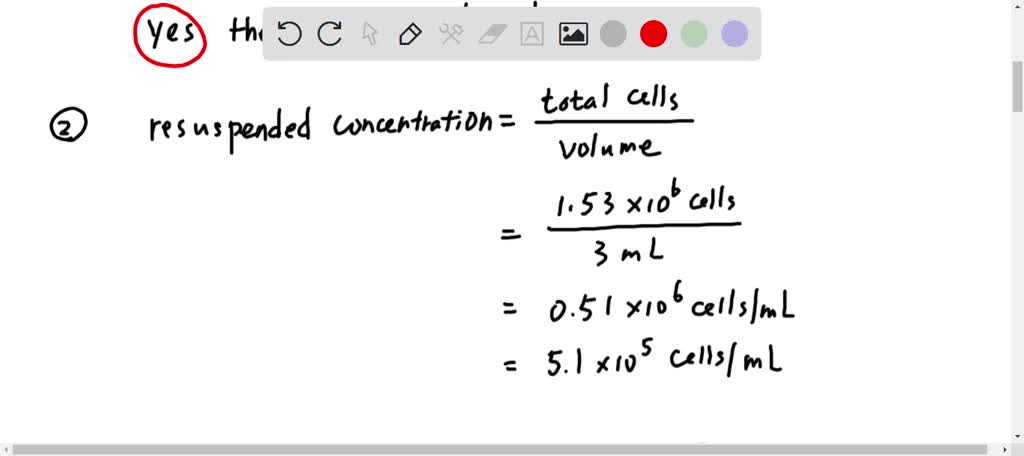 yes the
② resuspended concentration = total cells / volume
= 1.53 ×10⁶ cells / 3 mL
= 0.51 ×10⁶ cells/mL
= 5.1 ×10⁵ cells/mL